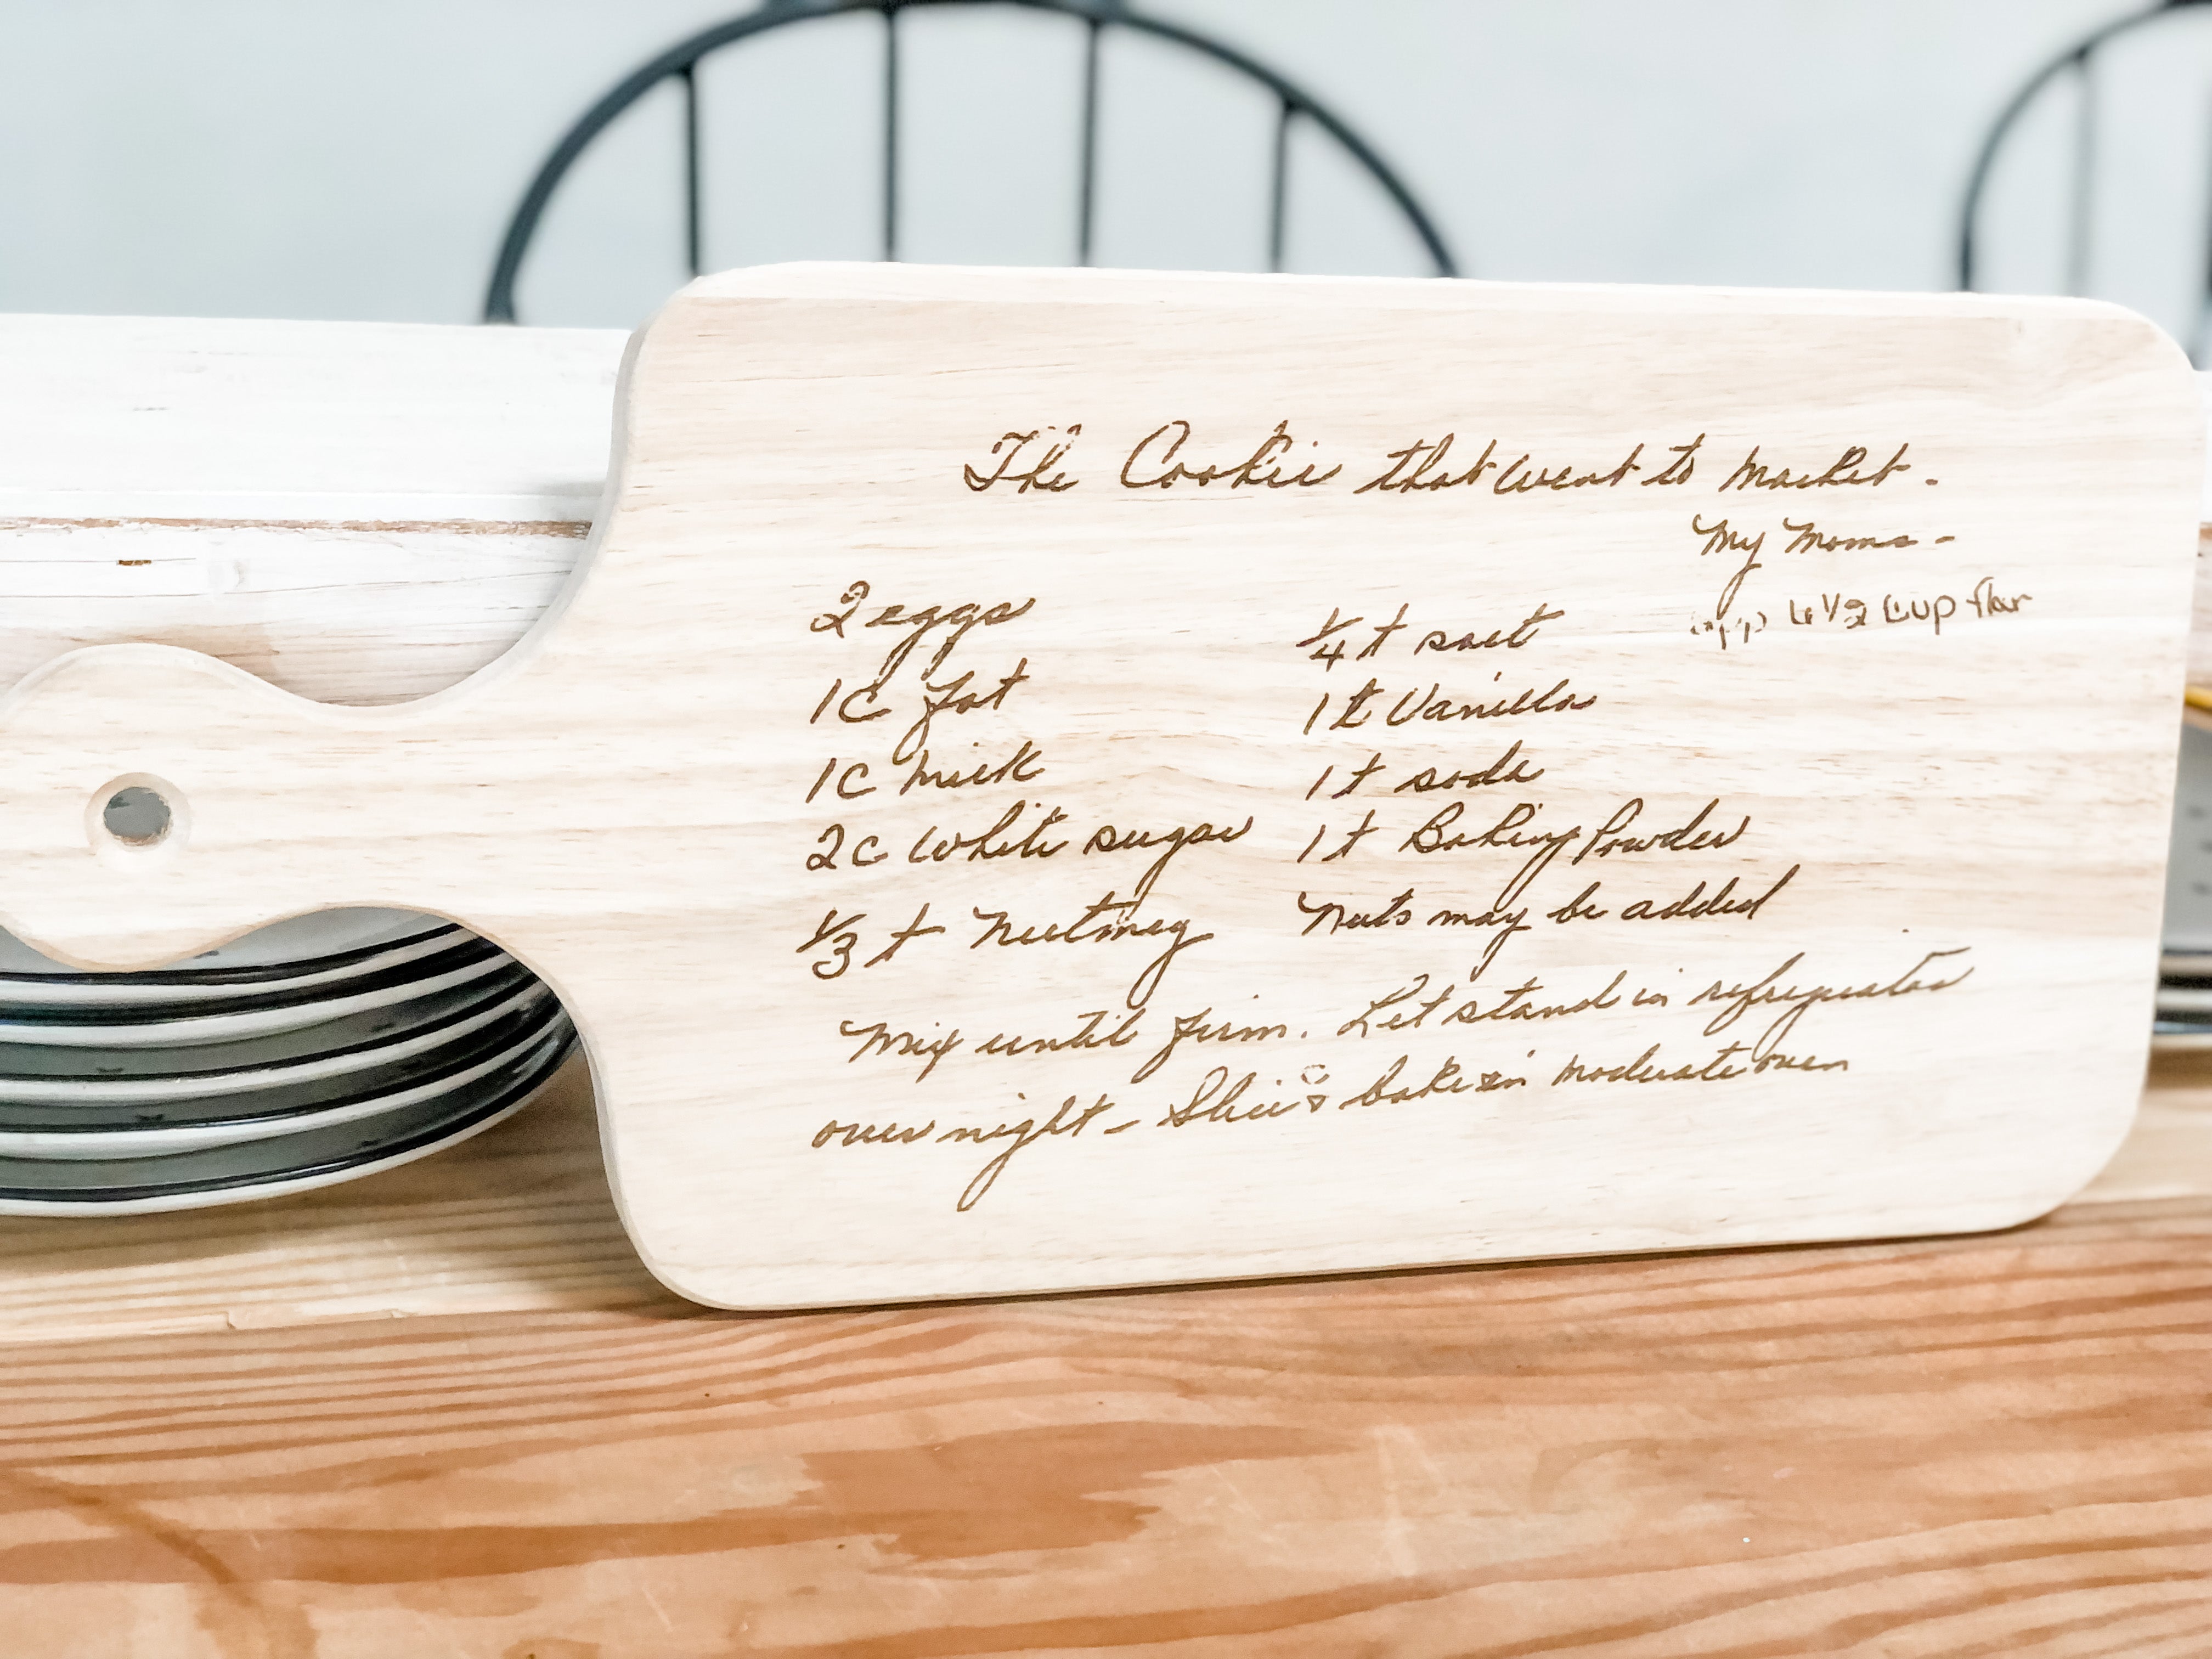 The Cookie that went to market.
My Moms -
app 6 1/2 cup flour
2 eggs
1C fat
1C milk
2C White sugar
1/3 t Nutmeg
1/4 t salt
1t Vanilla
1t soda
1t Baking Powder
Nuts may be added
Mix until firm. Let stand in refrigerator
over night - Slice & bake in moderate oven